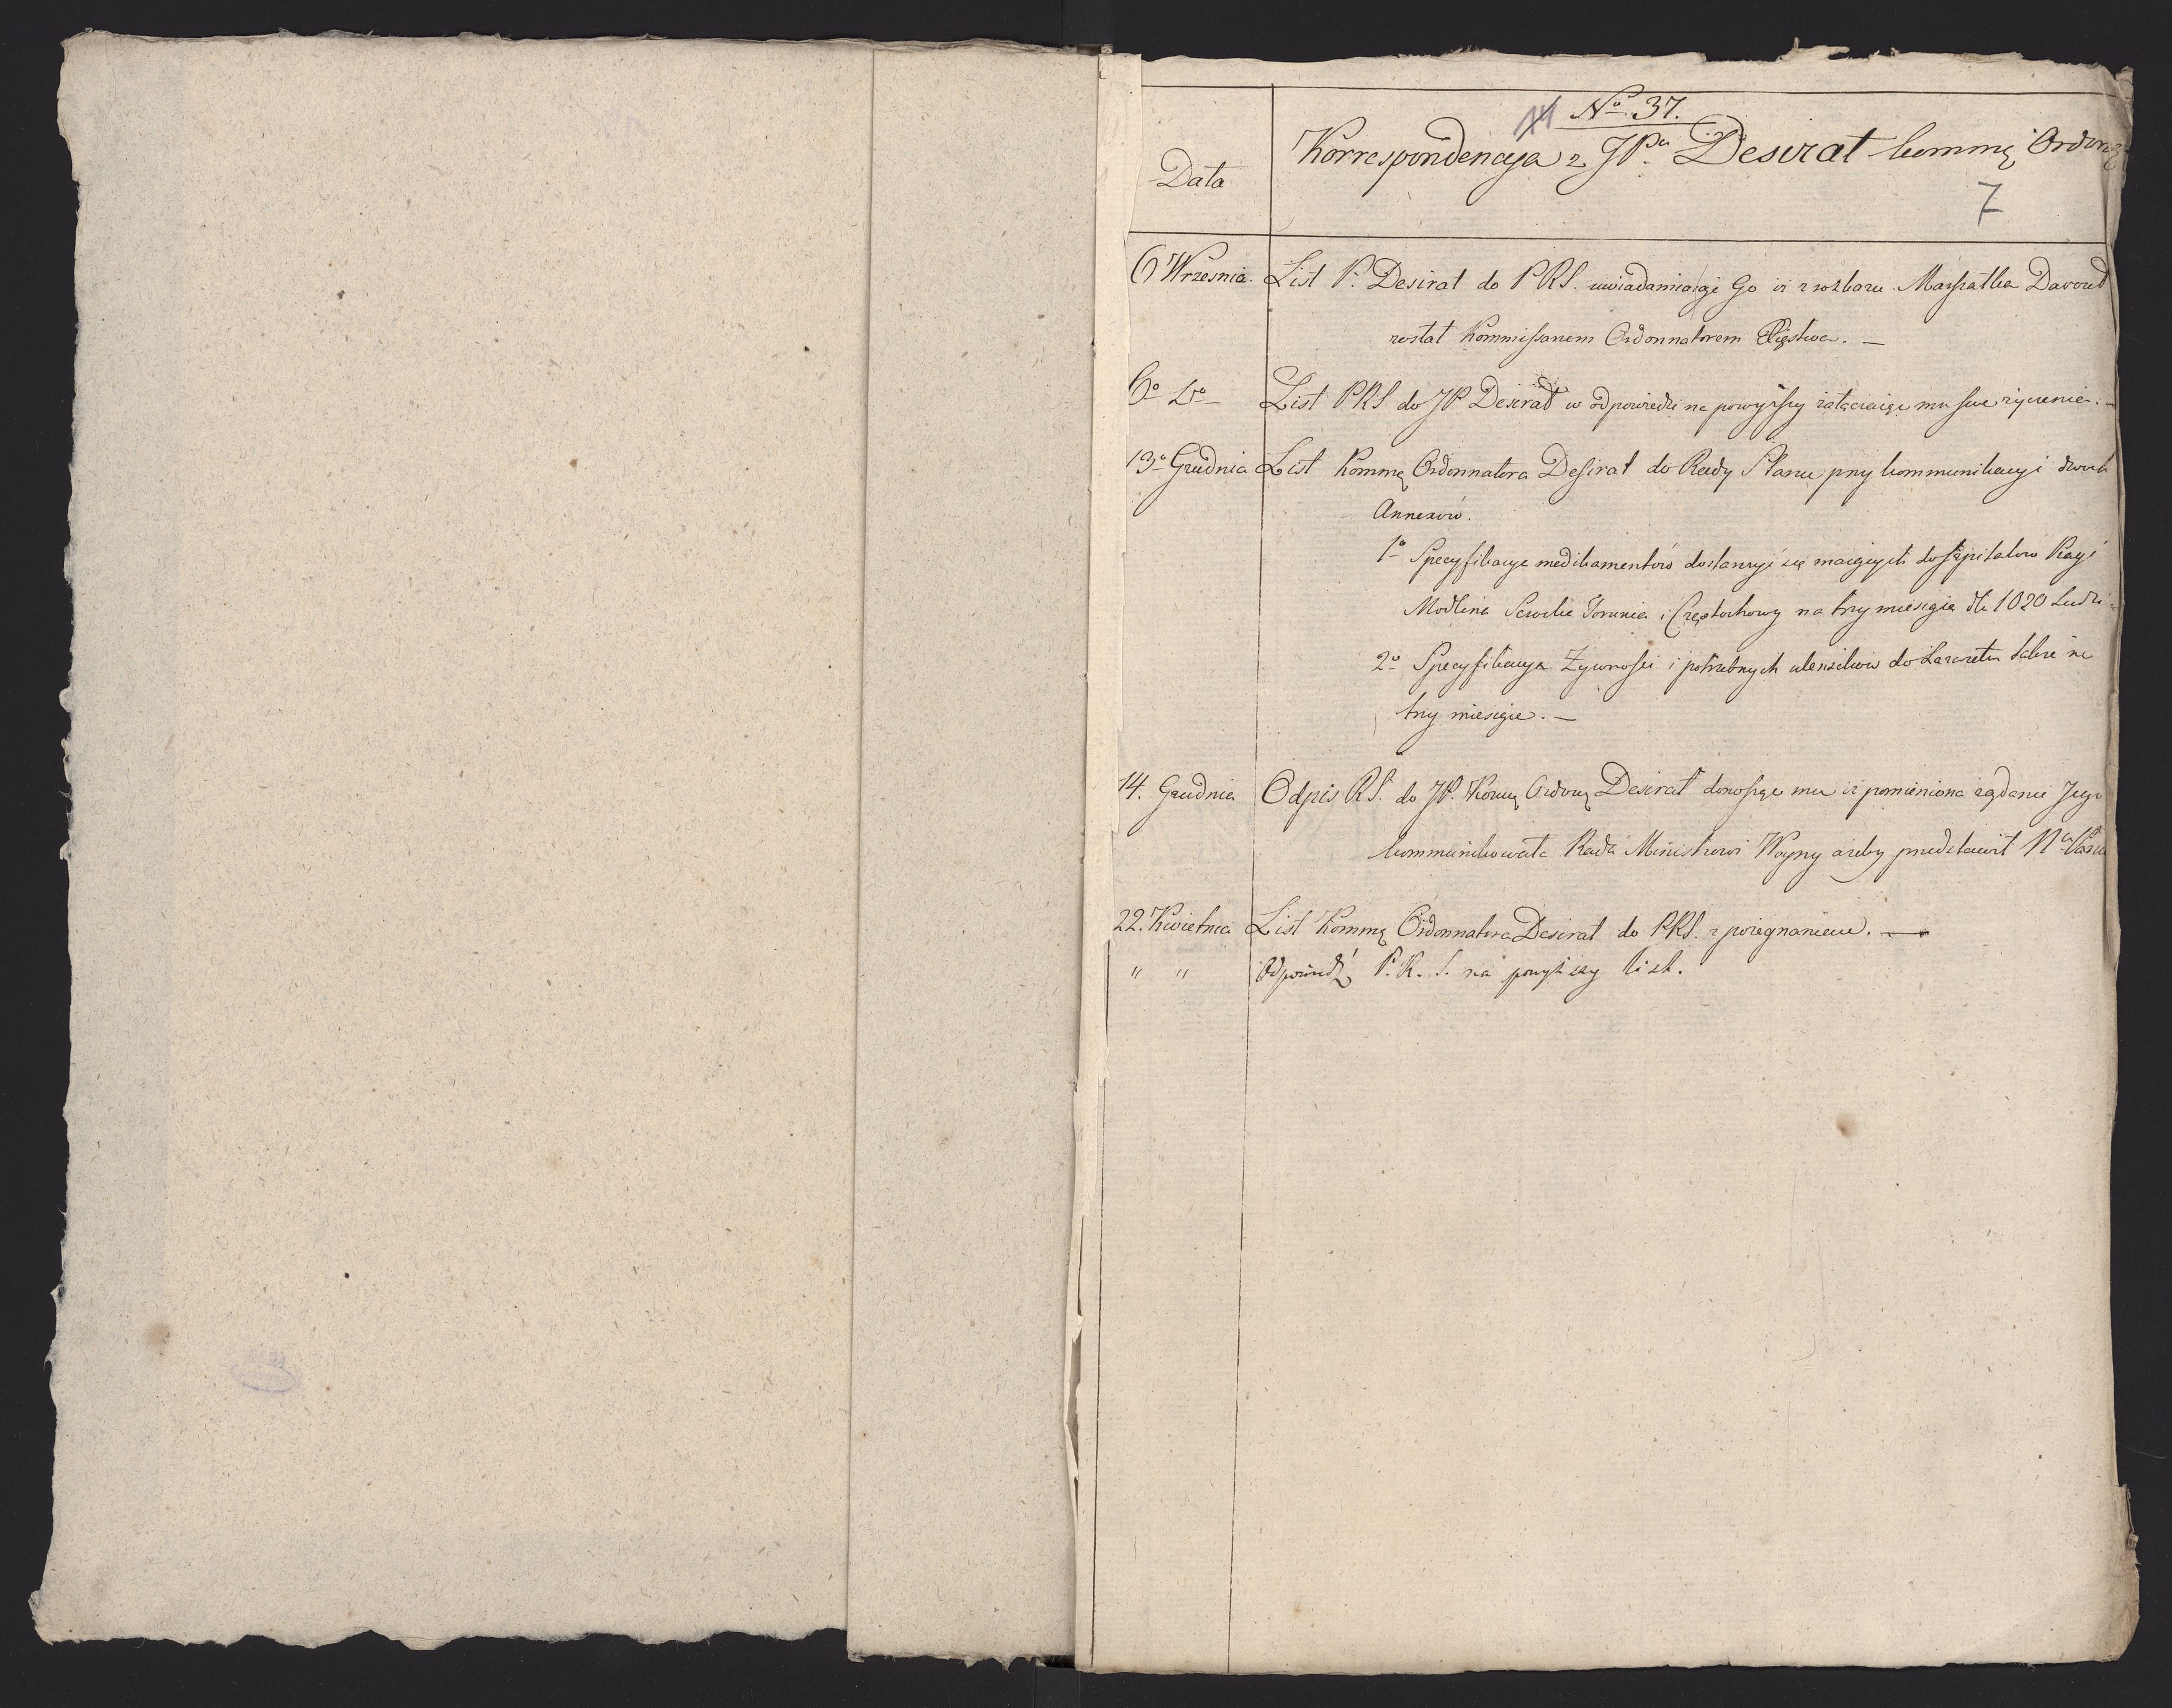 No. 37.
Korrespondencya z JPa Desirat kommę Ordonę
Data
7
6 Wrzesnia. List P. Desirat do PRS. uwiadamiaiący Go iż z rozkazu Marszałka Davoud
został Kommissarzem Ordonnatorem Xięstwa. —
6o Do List PRS do JP Desirat w odpowiedzi na powyższy załączaiąc mu swe życzenia. —
13o Grudnia List Kommę Ordonnatora Desirat do Rady Stanu przy kommunikacyi dwóch
Annexów.
1o Specyfikacya medikamentów dostarczyć się maiących do szpitalów Pragi
Modlina Serocka Torunia i Częstochowy na trzy miesiące dla 1020 Ludzi
2o Specyfikacya Żywności i potrzebnych utensiliow do Lazaretu także na
trzy miesiące. —
14. Grudnia Odpis RS. do JP. Kommę Ordonę Desirat donosząc mu iż pomienione żądanie Jego
kommunikowała Rada Ministrowi Woyny ażeby przedstawił
22. Kwietnia List Kommę Ordonnatora Desirat do PRS. z pożegnaniem. —
" " Odpowiedź P. R. S. na powyższy list.